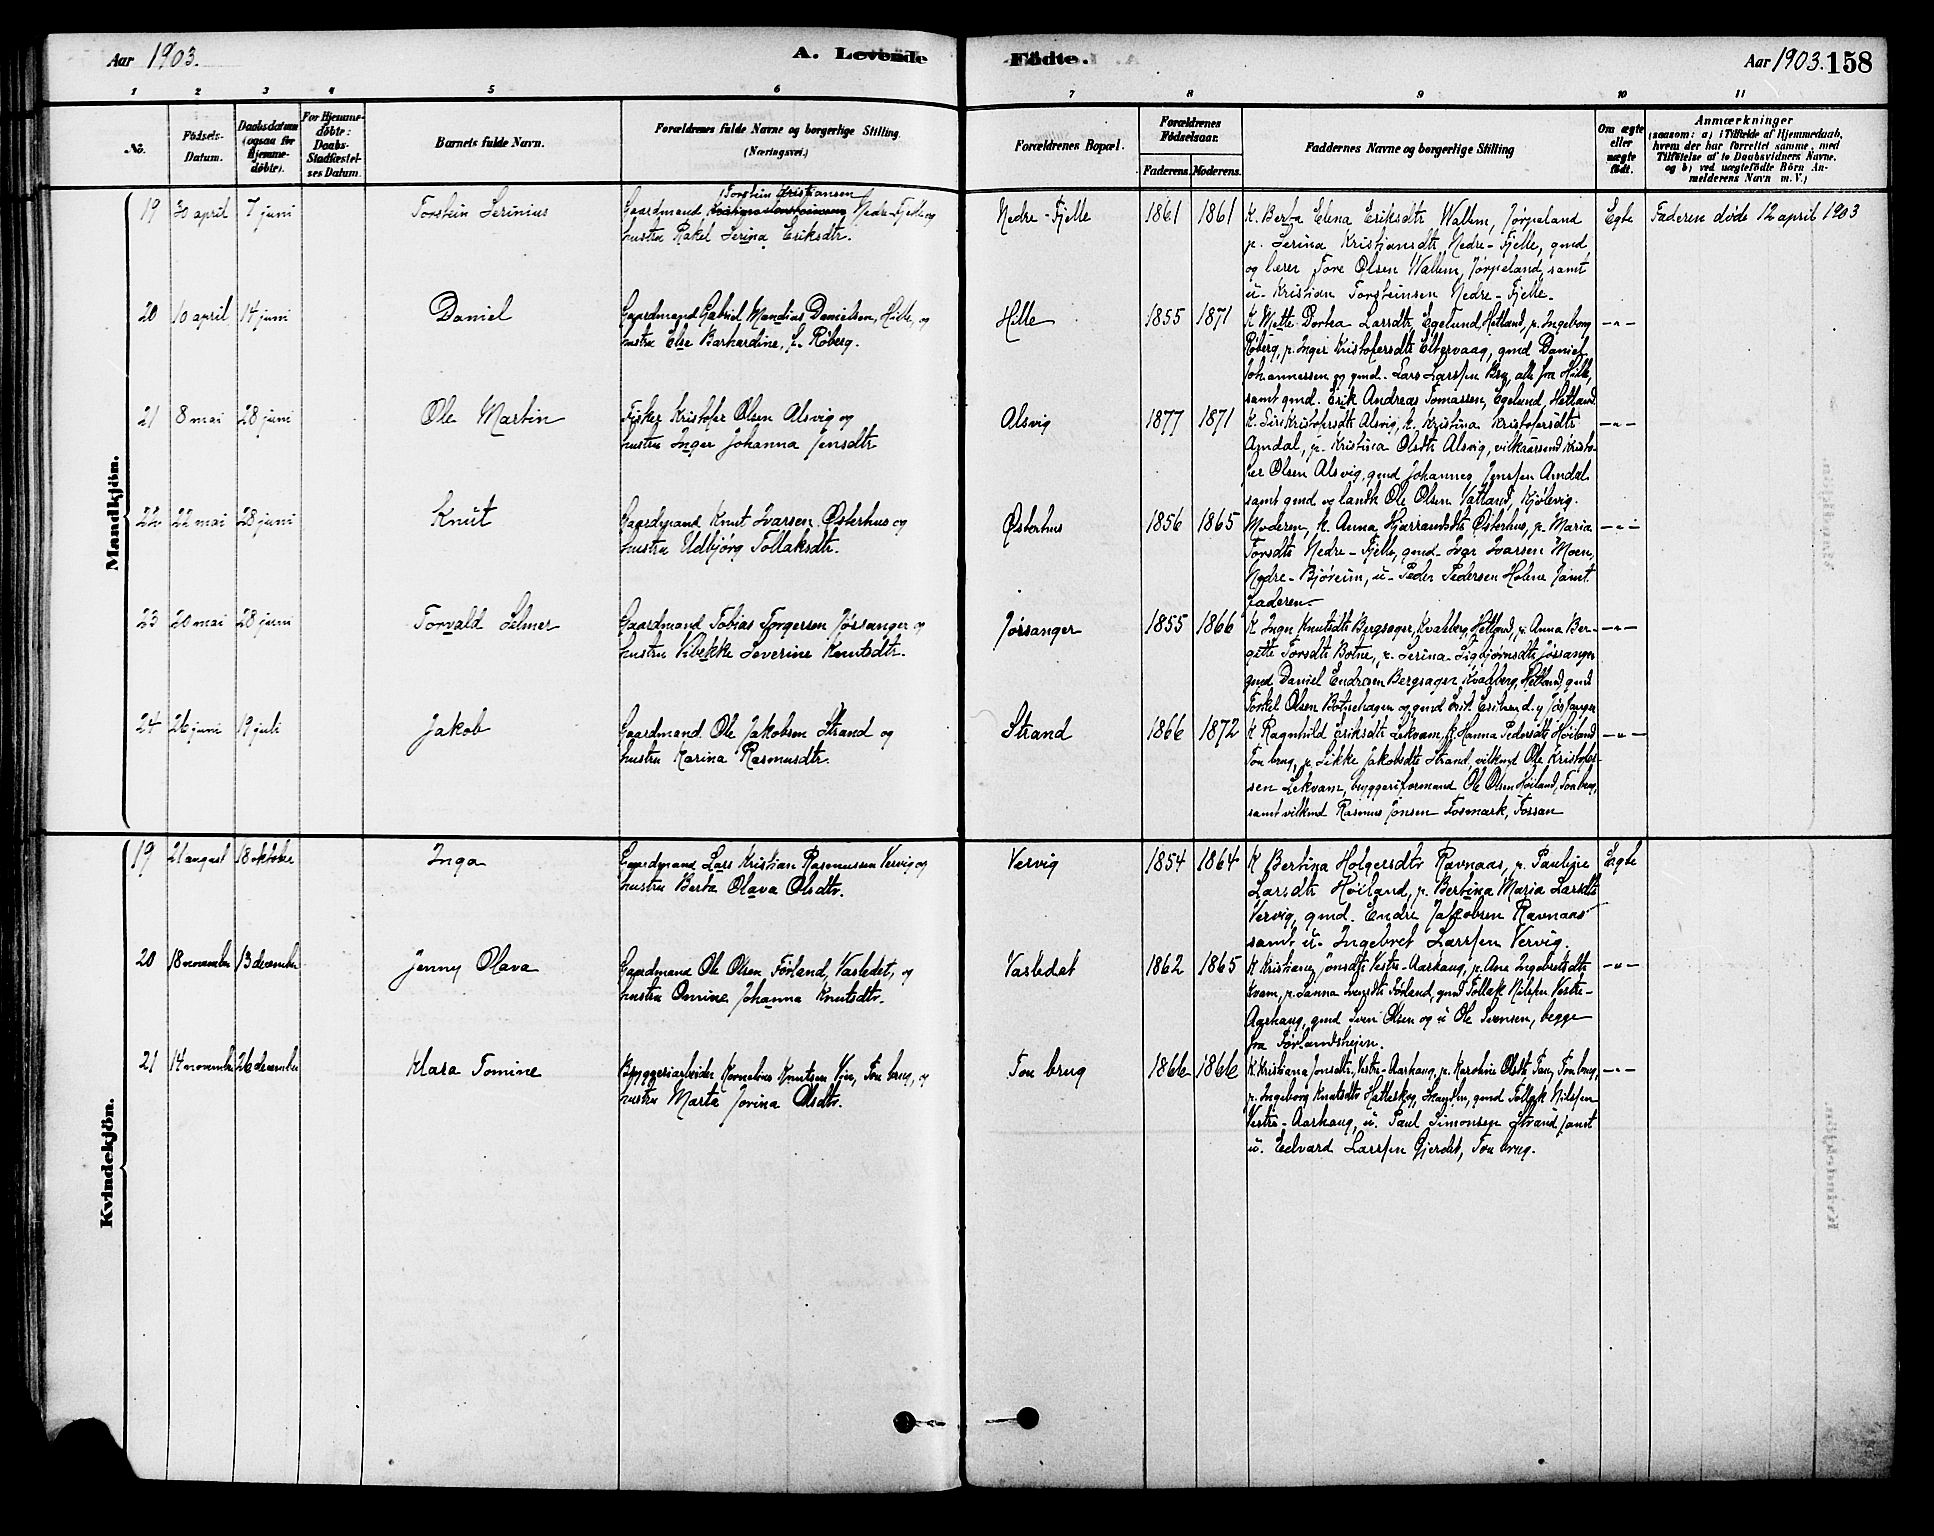 Aar 1903.
A. Levende
Fødte.
Aar 1903. 158
1 2 3 4 5 6 7 8 9 10 11
No.
Fødsels-Datum.
Daabsdatum (ogsaa for Hjemmedøbte).
For Hjemmedøbte: Daabs-Stadfæstelses Datum.
Barnets fulde Navn.
Forældrenes fulde Navne og borgerlige Stilling (Næringsvei.)
Forældrenes Bopæl.
Forældrenes Fødselsaar.
Faderens. Moderens.
Faddernes Navne og borgerlige Stilling
Om ægte eller uægte født.
Anmærkninger
(saasom: a) i Tilfælde af Hjemmedaab, hvem der har forrettet samme, med Tilføielse af to Daabsvidners Navne, og b) ved uægtefødte Börn Anmelderens Navn m. V.)
Mandkjön.
19 30 april 7 juni Torstein Serinius
Torstein Kristiansen
Gaardmand Nedre-Fjelle og
hustru Rakel Serina Eriksdtr.
Nedre-Fjelle 1861 1861
K. Berta Elena Eriksdtr Wallem, Jørpeland
p. Serina Kristiansdtr, Nedre-Fjelle, gmd
og lærer Tore Olsen Wallem, Jørpeland, samt
u. Kristian Torsteinsen Nedre-Fjelle.
Egte Faderen døde 12 april 1903
20 10 april 14 juni Daniel
Gaardmand Gabriel Mandius Danielsen, Hille, og
hustru Else Barhardine, f. Røberg.
Hille 1855 1871
K Mette Dortea Larsdtr, Egelund, Hetland, p. Ingeborg
Røberg, p. Inger Kristofersdtr Eltervaag, gmd Daniel
Johannessen og gmd. Lars Larssen Bru, alle fra Hille,
samt gmd. Erik Andreas Tomassen, Egelund Hetland
—"—
21 8 mai 28 juni Ole Martin
Fisker Kristofer Olsen Alsvig og
hustru Inger Johanna Jensdtr
Alsvig 1877 1871
K. Siri Kristofersdtr Alsvig, k. Kristina Kristofersdtr
Amdal, p. Kristina Olsdtr Alsvig, vilkaarsmd Kristo-
fer Olsen Alsvig, gmd Johannes Jenssen Amdal
samt gmd og landh Ole Olsen Vatland, Kjølevig.
—"—
22 22 mai 28 juni Knut
Gaardmand Knut Ivarsen Østerhus og
hustru Udbjørg Tollaksdtr.
Østerhus 1856 1865
Moderen, k. Anna Hjarrandsdtr Østerhus, p. Maria
Torsdtr Nedre-Fjelle, gmd. Ivar Ivarsen Moen,
Nedre-Bjøreim, u. Peder Pedersen Holene samt
faderen.
—"—
23 20 mai 28 juni Torvald Selmer
Gaardmand Tobias Torgersen Jøssanger og
hustru Vibekke Severine Knutsdtr.
Jøssanger 1855 1866
K Inga Knutsdtr Bergsager, Kvakberg, Hetland, p. Anna Ber-
gitte Torsdtr Botne, p. Serina Sigbjørnsdtr Jøssanger
gmd Daniel Endresen Bergsager Kvakberg, Hetland, gmd
Torkel Olsen Botnehagen og gmd Erik Eriksen d.y Jøssanger
—"—
24 26 juni 19 juli Jakob
Gaardmand Ole Jakobsen Strand og
hustru Karina Rasmusdtr.
Strand 1866 1872
K Ragnhild Eriksdtr Lekvam, k. Hanna Pedersdtr Høiland
Tou brug, p. Sikke Jakobsdtr Strand, vilkmd Ole Kristofer-
sen Lekvam, bryggeriformand Ole Olsen Høiland, Tou brug,
samt vilkmd Rasmus Jonsen Fosmark, Fossan
—"—
Kvindekjön.
19 21 august 18 oktober Inga
Gaardmand Lars Kristian Rasmussen Vervig og
hustru Berta Olava Olsdtr.
Vervig 1854 1864
K Bertina Holgersdtr Ravnaas, p. Pauline
Larsdtr Høiland, p. Bertina Maria Larsdtr
Vervig, gmd. Endre Jakobsen Ravnaas
samt u. Ingebret Larssen Vervig.
Egte
20 18 november 13 december Jenny Olava
Gaardmand Ole Olsen Førland, Vasledet, og
hustru Omine Johanna Knutsdtr.
Vasledet 1862 1865
K Kristiane Jonsdtr Vestre-Aarhaug, p. Ane Ingebretsdtr
Kvam, p. Sanna Svensdtr Førland, gmd Tollak Nilssen Vestre-
Aarhaug, gmd Sven Olsen og u Ole Svensen, begge
fra Førlandsheien.
—"—
21 14 november 26 december Klara Tomine
Bryggeriarbeider Kornelius Knutsen Vier, Tou brug, og
hustru Marta Jorina Olsdtr.
Tou brug 1866 1866
K Kristiana Jonsdtr, Vestre-Aarhaug, p. Karoline Olsdtr Tau, Tou brug,
p. Ingeborg Knutsdtr Hatleskog, gmd Tollak Nilssen
Vestre-Aarhaug, u. Paul Simonsen Strand samt
u. Edvard Larssen Gjerdet, Tou brug.
—"—